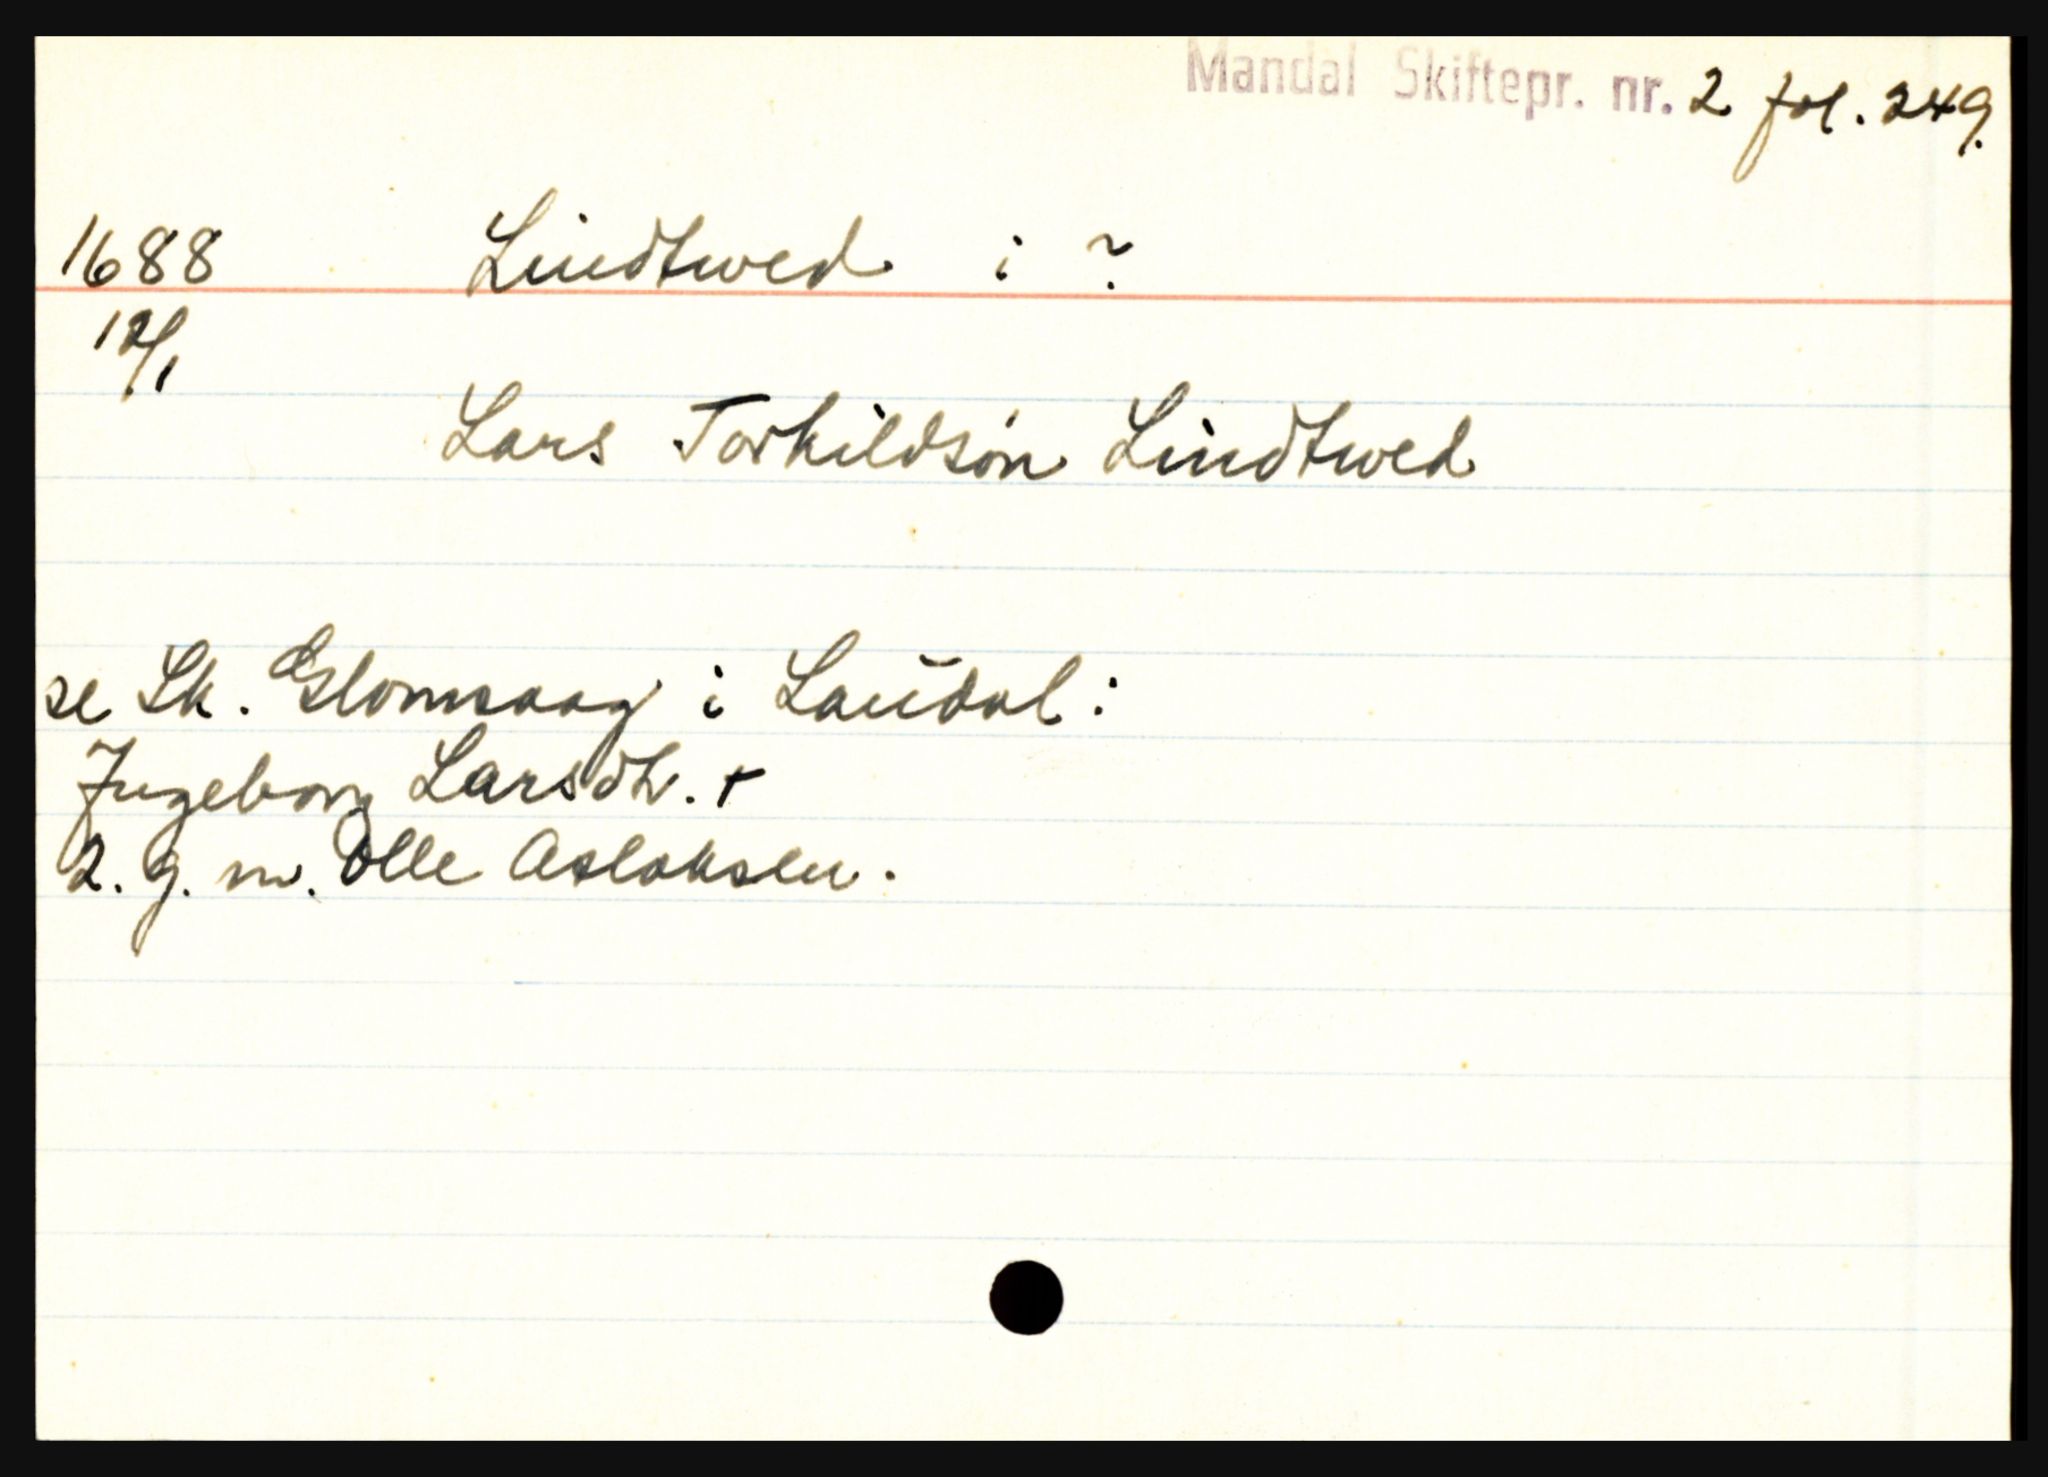 Mandal Skiftepr. nr. 2 fol. 249.
1688 Lindtwed i ?
12/1
Lars Torkildsøn Lindtwed
se Sk. Glomsaag i Laudal:
Ingeborg Larsdtr. +
2. g. m. Olle Aslaksen.